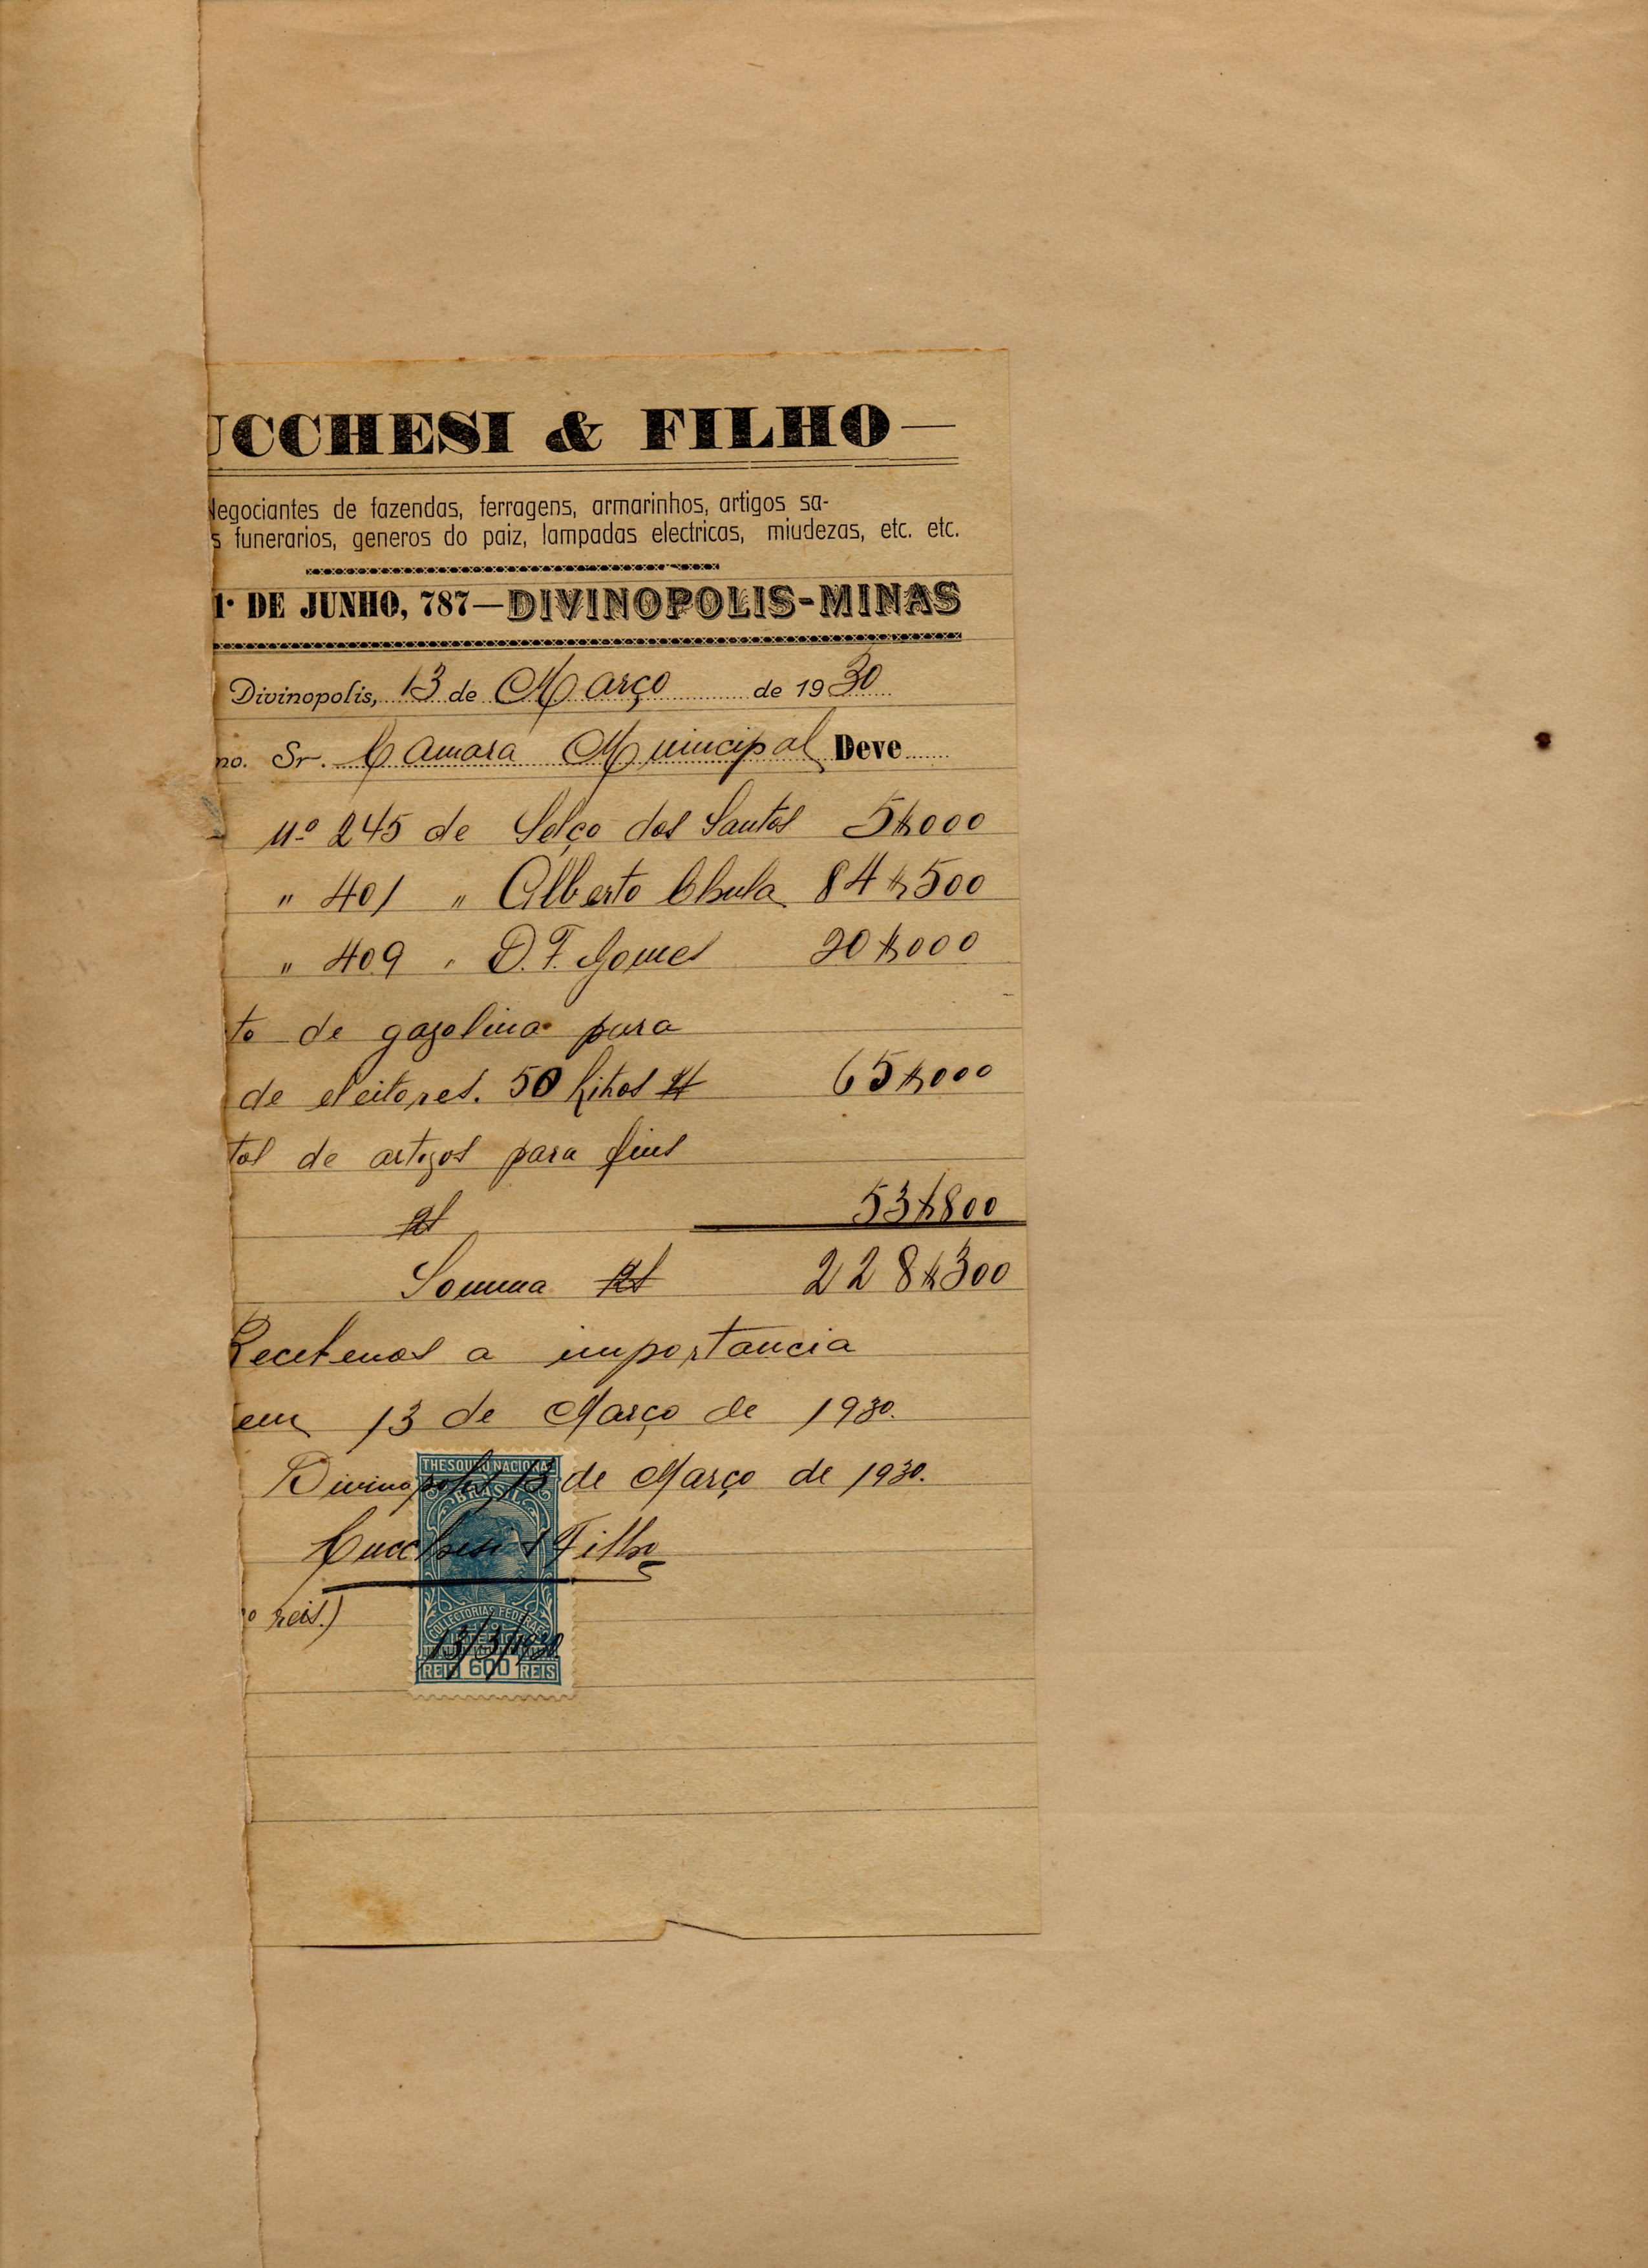 UCCHESI & FILHO—
Negociantes de fazendas, ferragens, armarinhos, artigos sa-
s funerarios, generos do paiz, lampadas electricas, miudezas, etc. etc.
1º DE JUNHO, 787—DIVINOPOLIS-MINAS
Divinopolis, 13 de Março de 1930
mo. Sr. Camara Municipal Deve
nº 245 de dos Santos 5$000
" 401 " Alberto 84$500
" 409 " D. F. Gomes 20$000
to de gazolina para
de eleitores. 50 litros Rs 65$000
tal de artigos para fins
Rs 53$800
Somma Rs 228$300
Recebemos a importancia
em 13 de Março de 1930.
Divinopolis, 13 de Março de 1930.
Lucchesi & Filho
o reis.)
THESOURO NACIONAL
BRASIL
COLLECTORIAS FEDERAES
13/3/1930
REIS 600 REIS